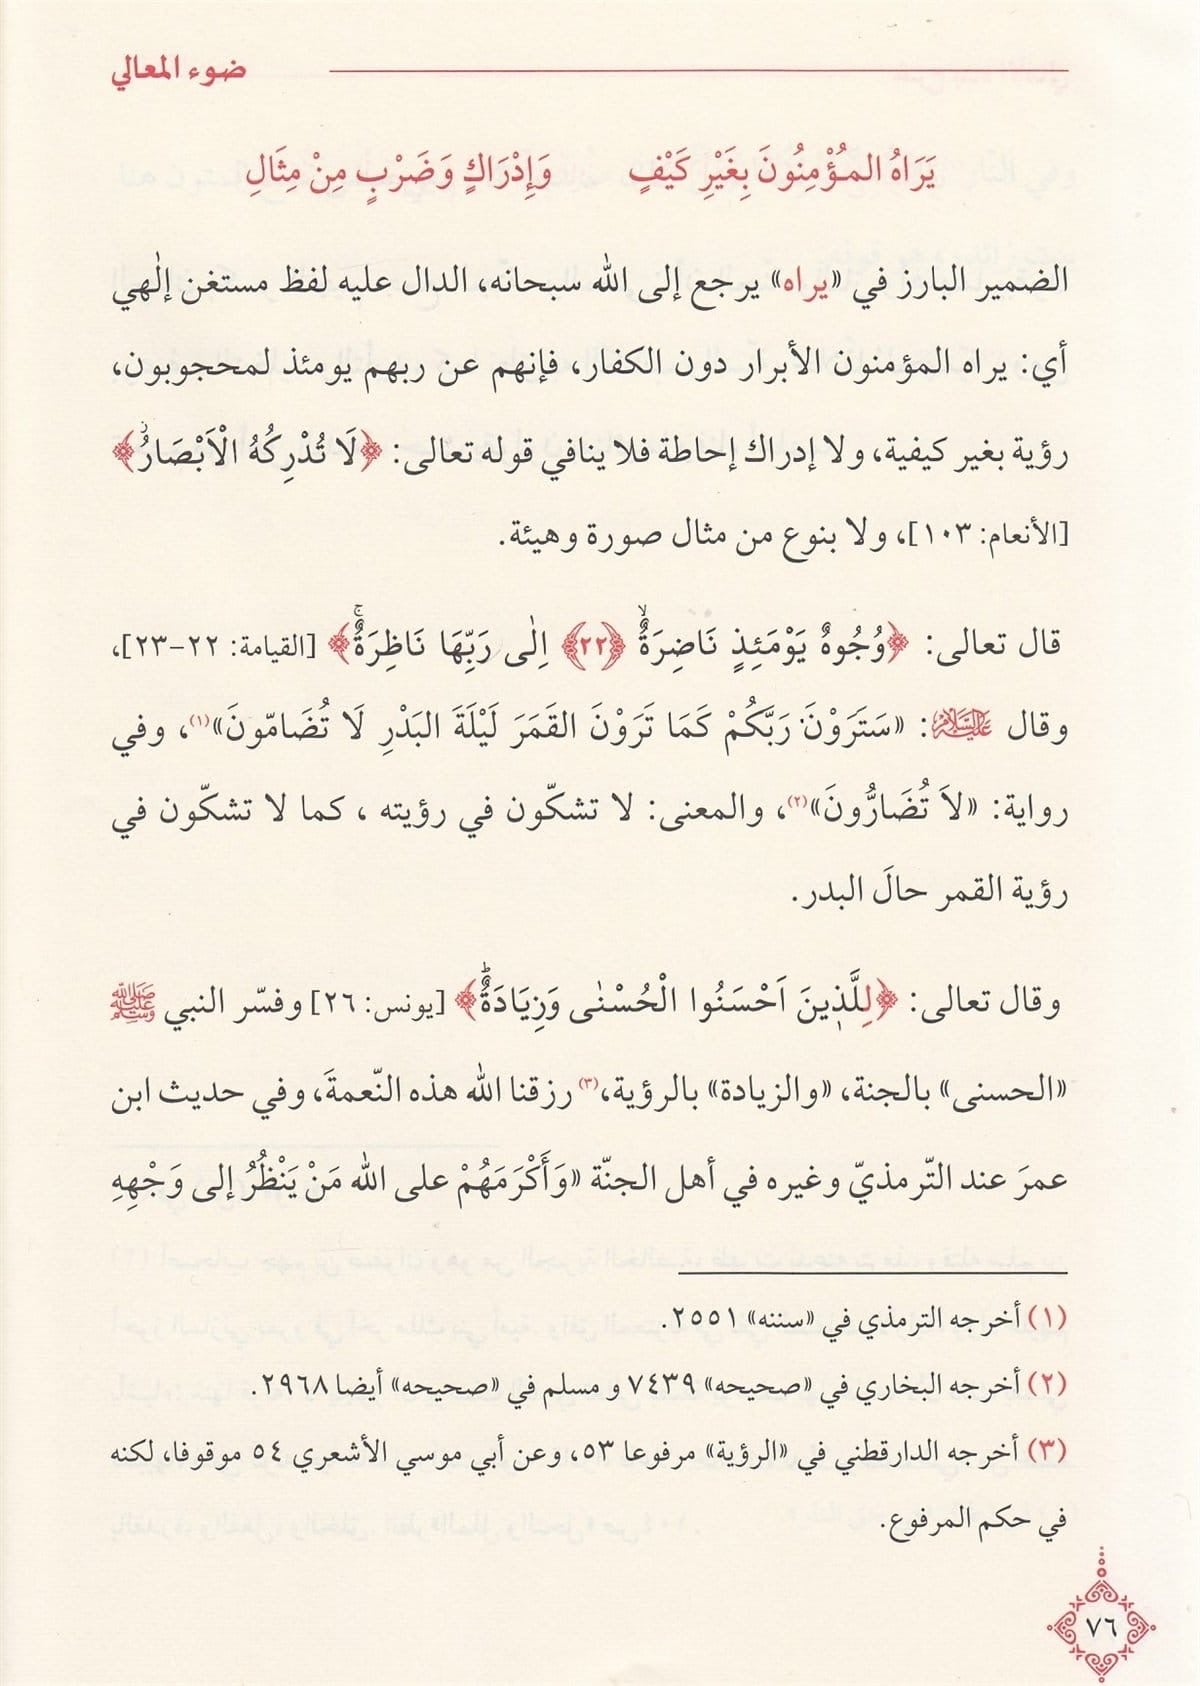 ضوء المعالي
يَرَاهُ المُؤْمِنُونَ بِغَيْرِ كَيْفٍ وَإِدْرَاكٍ وَضَرْبٍ مِنْ مِثَالِ
الضمير البارز في «يراه» يرجع إلى الله سبحانه، الدال عليه لفظ مستغن إلٰهي
أي: يراه المؤمنون الأبرار دون الكفار، فإنهم عن ربهم يومئذ لمحجوبون،
رؤية بغير كيفية، ولا إدراك إحاطة فلا ينافي قوله تعالى: ﴿لَا تُدْرِكُهُ الْاَبْصَارُۘ﴾
[الأنعام: ١٠٣]، ولا بنوع من مثال صورة وهيئة.
قال تعالى: ﴿وُجُوهٌ يَوْمَئِذٍ نَاضِرَةٌۙ ﴿٢٢﴾ اِلٰى رَبِّهَا نَاظِرَةٌۚ﴾ [القيامة: ٢٢-٢٣]،
وقال عَلَيْهِ السَّلَامُ: «سَتَرَوْنَ رَبَّكُمْ كَمَا تَرَوْنَ القَمَرَ لَيْلَةَ البَدْرِ لَا تُضَامّونَ»(١)، وفي
رواية: «لاَ تُضَارُّونَ»(٢)، والمعنى: لا تشكّون في رؤيته ، كما لا تشكّون في
رؤية القمر حالَ البدر.
وقال تعالى: ﴿لِلَّذِينَ اَحْسَنُوا الْحُسْنٰى وَزِيَادَةٌۜ﴾ [يونس: ٢٦] وفسّر النبي ﷺ
«الحسنى» بالجنة، «والزيادة» بالرؤية،(٣) رزقنا الله هذه النّعمةَ، وفي حديث ابن
عمرَ عند التّرمذيّ وغيره في أهل الجنّة «وَأَكْرَمَهُمْ على الله مَنْ يَنْظُرُ إلى وَجْهِهِ
(١) أخرجه الترمذي في «سننه» ٢٥٥١.
(٢) أخرجه البخاري في «صحيحه» ٧٤٣٩ و مسلم في «صحيحه» أيضا ٢٩٦٨.
(٣) أخرجه الدارقطني في «الرؤية» مرفوعا ٥٣، وعن أبي موسي الأشعري ٥٤ موقوفا، لكنه
في حكم المرفوع.
٧٦